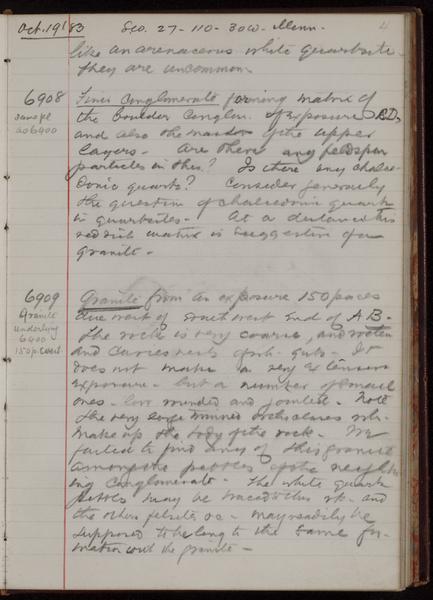 Oct. 19 / 83 Sec. 27-110-30W. Minn. 4
like an arenaceous white quartzite.
They are uncommon.
6908
same pl
as 6900
Finer Conglomerate forming matrix of
the boulder Conglom. of exposure BD,
and also the mass of the upper
layers. Are there any feldspar
particles in this? Is there any chalce-
donic quartz? Consider generally
the question of chalcedonic quartz
in quartzites. At a distance this
reddish matrix is suggestive of a
granite.
6909
Granite
underlying
6900
150 p. West.
Granite from an exposure 150 paces
due west of southwest end of AB.
The rock is very coarse, and rotten
and carries nests of
does not make a very extensive
exposure. but a number of small
ones. low rounded and jointed. Note
the very large twinned orthoclases wh.
make up the body of the rock. We
failed to find any of this granite
among the pebbles of the neighbor-
ing conglomerate. The white quartz
pebbles may be traced to this rk. and
the other felsites &c. may readily be
supposed to belong to the same for-
mation with the granite.